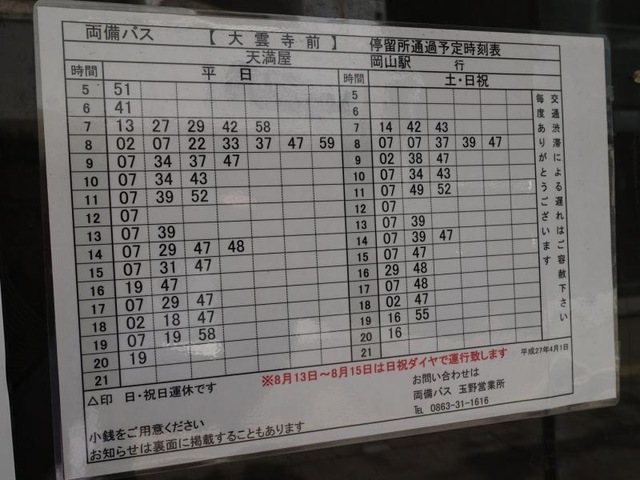 両備バス 【 大 雲 寺 前 】 停留所通過予定時刻表
天満屋 岡山駅 行
時間 平 日 時間 土・日祝
5 51 5
6 41 6
7 13 27 29 42 58 7 14 42 43
8 02 07 22 33 37 47 59 8 07 07 37 39 47
9 07 34 37 47 9 02 38 47
10 07 34 43 10 07 34 43
11 07 39 52 11 07 49 52
12 07 12 07
13 07 39 13 07 39
14 07 29 47 48 14 07 39 47
15 07 31 47 15 07 47
16 19 47 16 29 48
17 07 29 47 17 07 48
18 02 18 47 18 02 47
19 07 19 58 19 16 55
20 19 20 16
21 21
交通渋滞による遅れはご容赦下さい
毎度ありがとうございます
※8月13日~8月15日は日祝ダイヤで運行致します
平成27年4月1日
△印 日・祝日運休です
お問い合わせは
両備バス 玉野営業所
℡ 0863-31-1616
小銭をご用意ください
お知らせは裏面に掲載することもあります